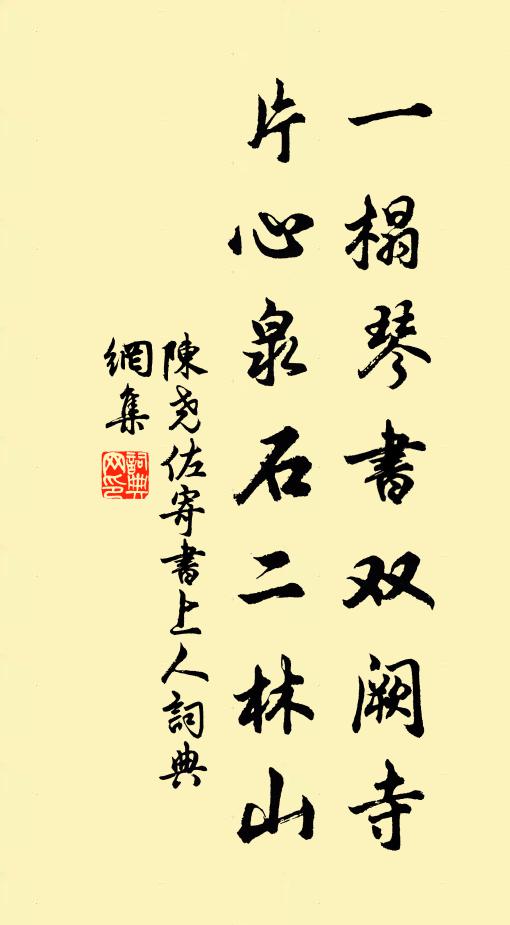 一榻琴書双阙寺
片心泉石二林山
陳尧佐寄書上人詞典
網集
詞典網印